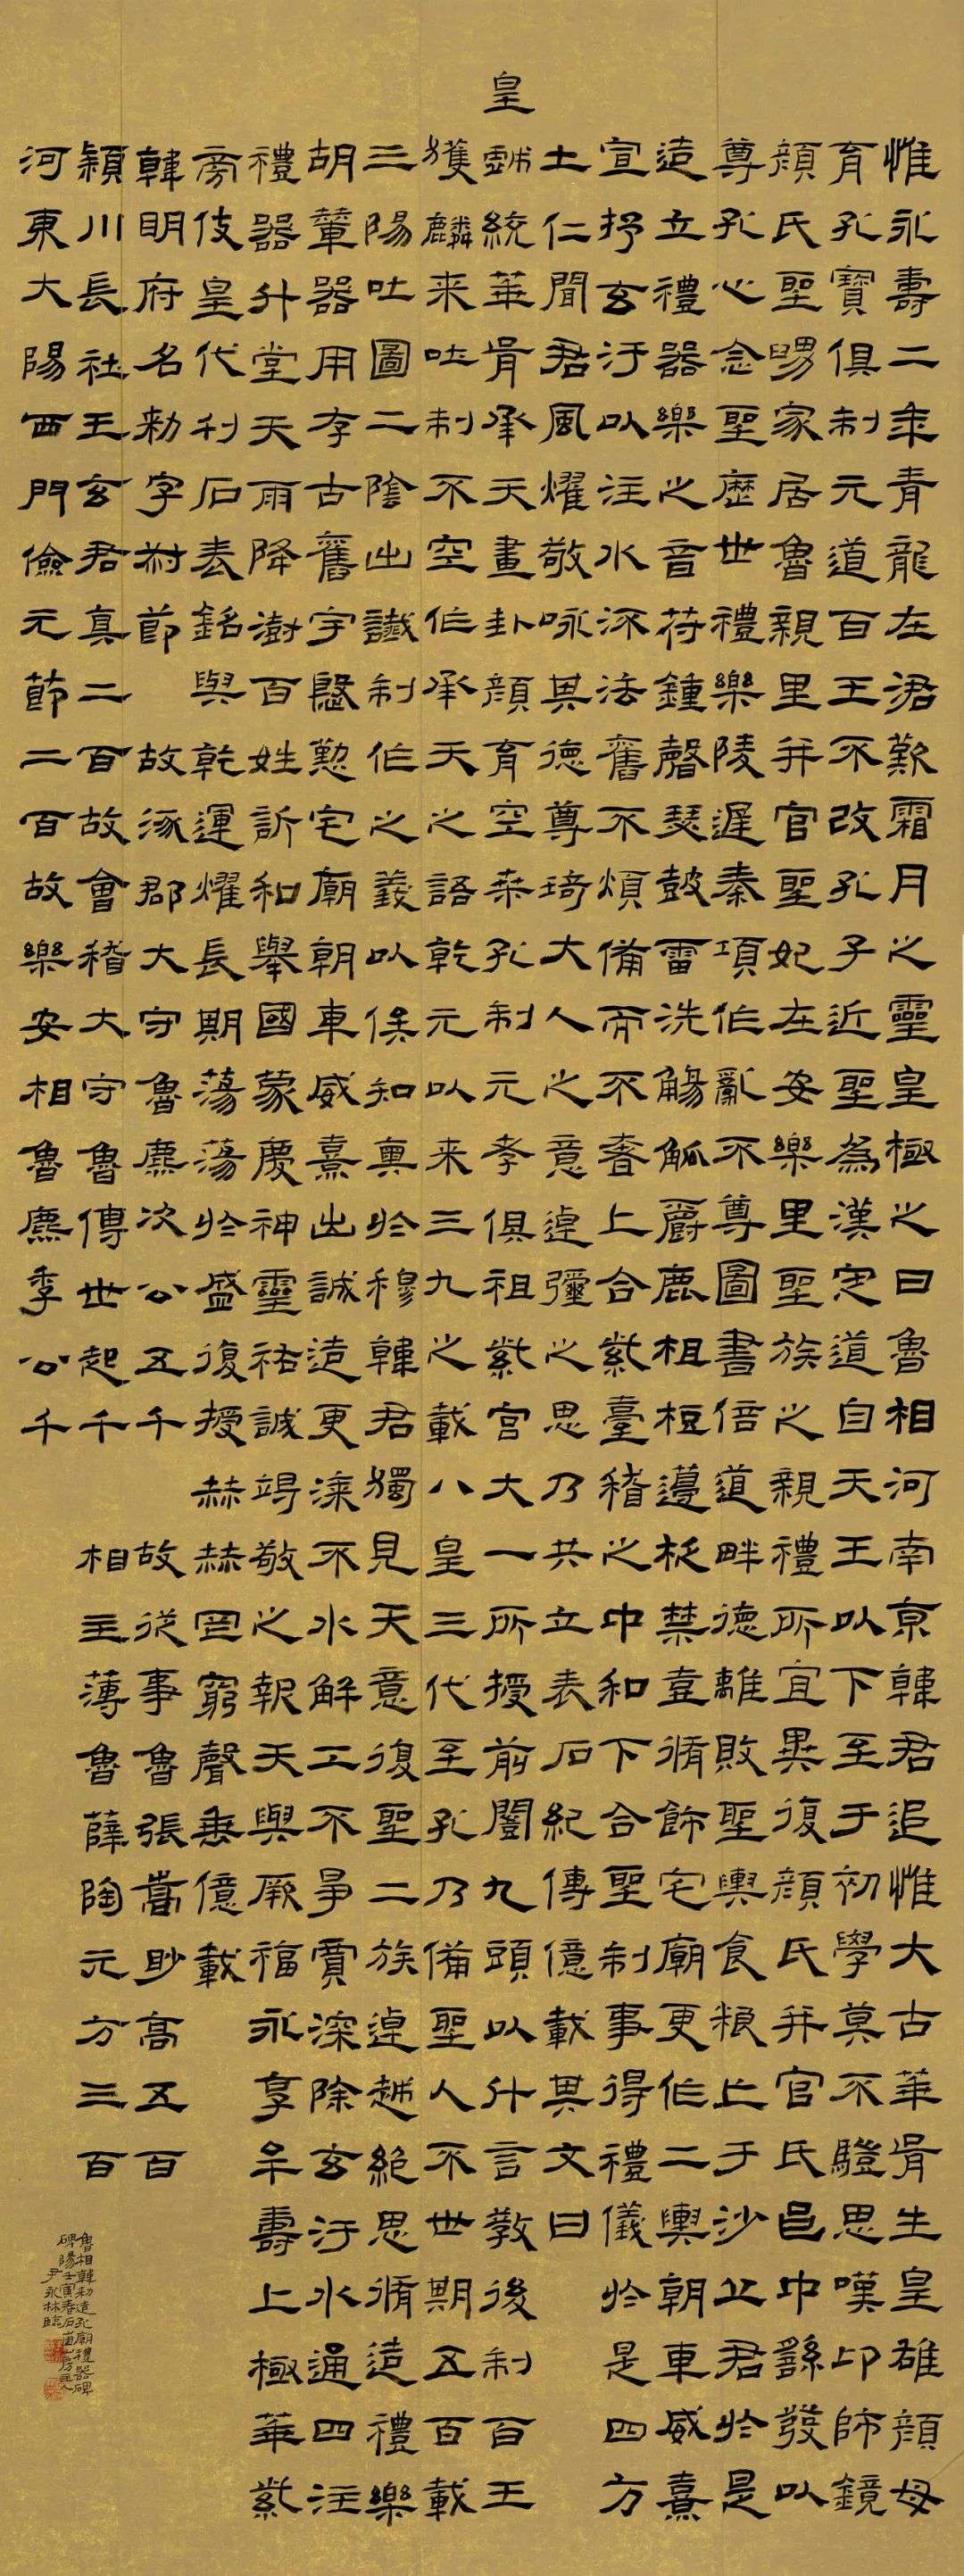 惟永壽二年青龍在涒歎霜月之靈皇極之日魯相河南京韓君追惟大古華胥生皇雄顏母
育孔寶俱制元道百王不改孔子近聖為漢定道自天王以下至于初學莫不驥思嘆卬師鏡
顏氏聖舅家居魯親里并官聖妃在安樂里聖族之親禮所宜異復顏氏并官氏邑中繇發以
尊孔心念聖歷世禮樂陵遲秦項作亂不尊圖書倍道畔德離敗聖輿食粮亡于沙丘君於是
造立禮器樂之音苻鍾磬瑟鼓雷洗觴觚爵鹿柤梪籩柉禁壺脩飾宅廟更作二輿朝車威熹
宣抒玄汙以注水流法舊不煩備而不奢上合紫臺稽之中和下合聖制事得禮儀於是四方
土仁聞君風燿敬咏其德尊琦大人之意逴彌之思乃共立表石紀傳億載其文曰
皇戲統華胥承天畫卦顏育空桑孔制元孝俱祖紫宮大一所授前闓九頭以什言教後制百王
獲麟來吐制不空作承天之語乾元以來三九之載八皇三代至孔乃備聖人不世期五百載
三陽吐圖二陰出讖制作之義以俟知奧於穆韓君獨見天意復聖二族逴越絕思脩造禮樂
胡輦器用存古舊宇慇懃宅廟朝車威熹出誠造更漆不水解工不爭賈深除玄汙水通四注
禮器升堂天雨降澍百姓訢和舉國蒙慶神靈祐誠竭敬之報天與厥福永享牟壽上極華紫
旁伎皇代刊石表銘與乾運燿長期蕩蕩於盛復授赫赫罔窮聲垂億載
韓明府名勑字叔節 故涿郡大守魯麃次公五千 故從事魯張嵩眇高五百
潁川長社王玄君真二百故會稽大守魯傅世起千 相主薄魯薛陶元方三百
河東大陽西門儉元節二百故樂安相魯麃季公千
魯相韓勑造孔廟禮器碑
碑陽壬寅春石山房主人
尹永林臨